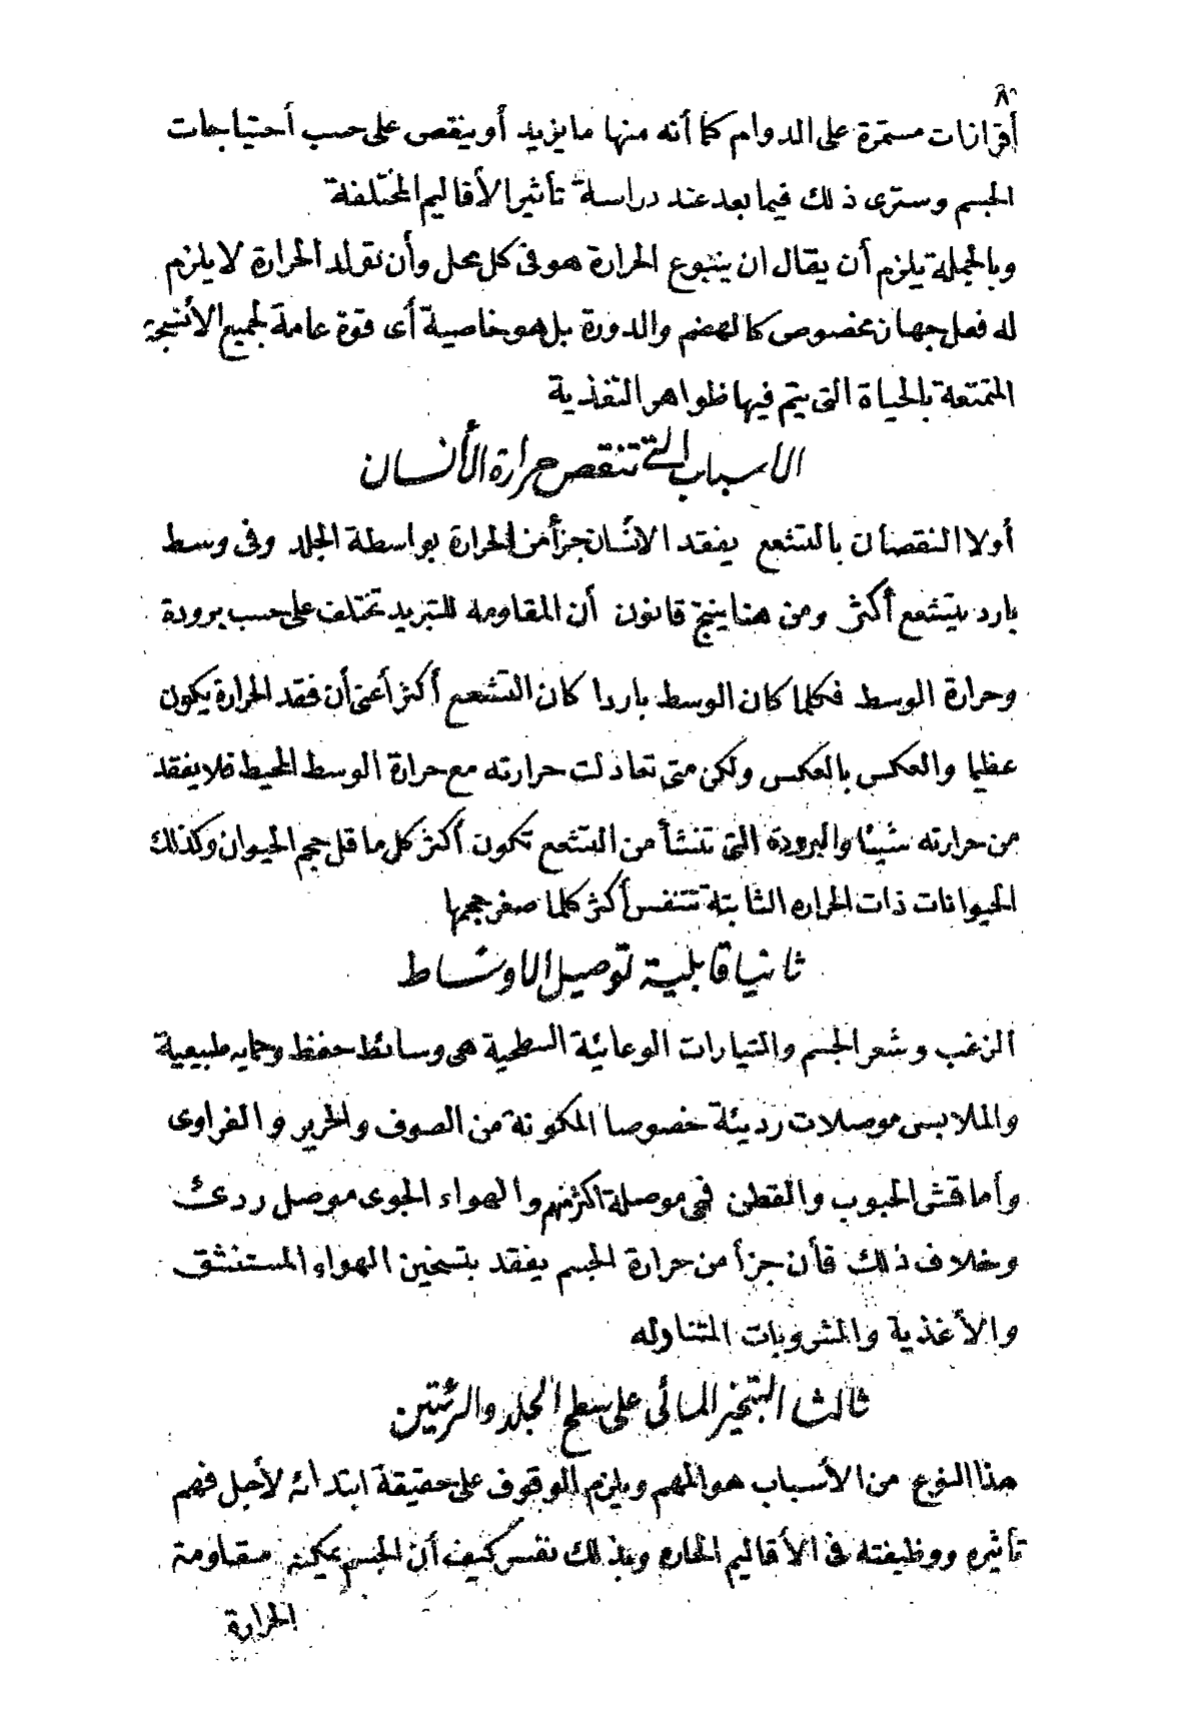 ٨
أفرازات مستمرة على الدوام كما أنه منها ما يزيد أو ينقص على حسب أحتياجات
الجسم وسترى ذلك فيما بعد عند دراسة تأثير الأقاليم المختلفة
وبالجملة يلزم أن يقال ان ينبوع الحرارة هو فى كل محل وأن تولد الحرارة لا يلزم
له فعل جهاز مخصوص كالهضم والدورة بل هو خاصية أى قوة عامة لجميع الأنسجة
المتمتعة بالحياة التى يتم فيها ظواهر التغذية
الاسباب التى تنقص حرارة الأنسان
أولا النقصان بالتشعع يفقد الانسان جزأ من الحرارة بواسطة الجلد وفى وسط
بارد يتشعع أكثر ومن هنا ينتج قانون أن المقاومه للتبريد تختلف على حسب برودة
وحرارة الوسط فكلما كان الوسط باردا كان التشعع أكثر أعنى أن فقد الحرارة يكون
عظيما والعكس بالعكس ولكن متى تعادلت حرارته مع حرارة الوسط المحيط فلا يفقد
من حرارته شيئا والبرودة التى تنشأ من التشعع تكون أكثر كل ما قل حجم الحيوان وكذلك
الحيوانات ذات الحراره الثابتة تتنفس أكثر كلما صغر حجمها
ثانيا قابلية توصيل الاوساط
الزغب وشعر الجسم والتيارات الوعائية السطحية هى وسائط حفظ وحمايه طبيعية
والملابس موصلات رديئة خصوصا المكونة من الصوف والحرير والفراوى
وأما قش الحبوب والقطن فهى موصلة اكثر منهم والهواء الجوى موصل ردئ
وخلاف ذلك فأن جزأ من حرارة الجسم يفقد بتسخين الهواء المستنشق
والأغذية والمشروبات المتناوله
ثالث التبخير المائى على سطح الجلد والرئتين
هذا النوع من الأسباب هو المهم ويلزم الوقوف على حقيقة ابتدائه لأجل فهم
تأثيره ووظيفته فى الأقاليم الحاره وبذلك نفسر كيف أن الجسم يمكنه مقاومة
الحرارة